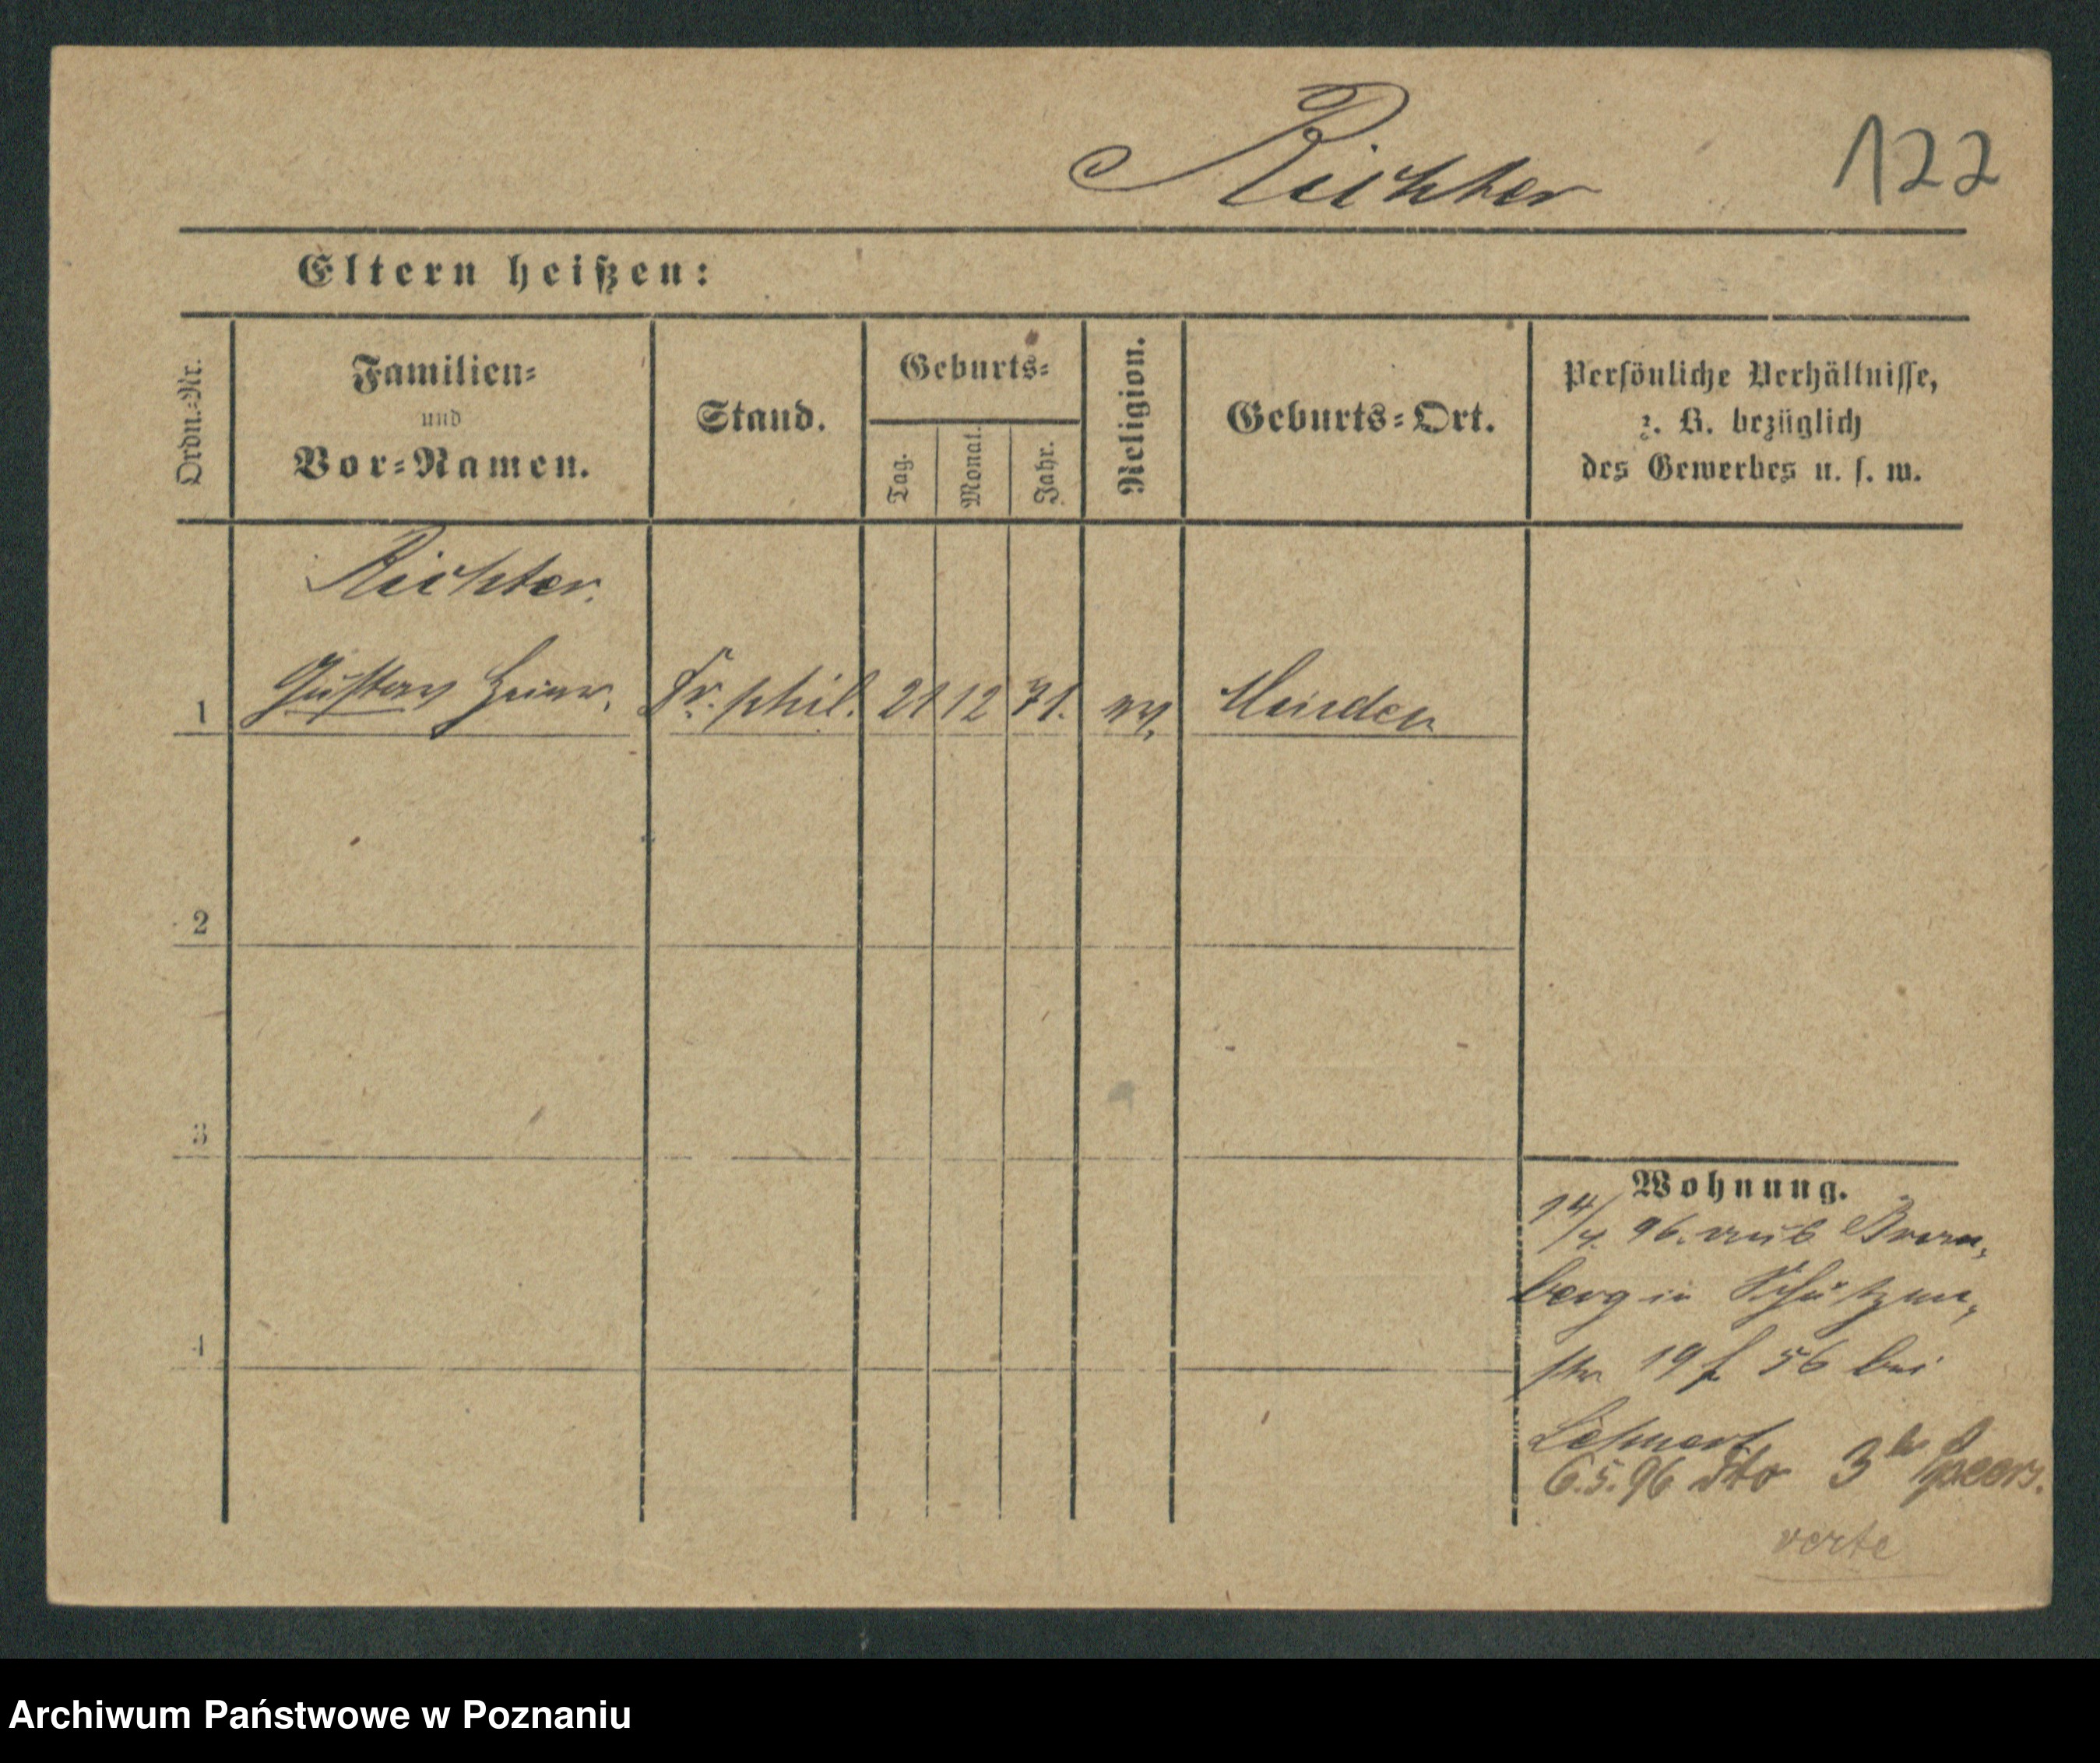 Richter 122
Eltern heißen:
Ordn.-Nr.
Familien-
und
Vor-Namen.
Stand.
Geburts-
Tag.
Monat.
Jahr.
Religion.
Geburts-Ort.
Persönliche Verhältnisse,
z. B. bezüglich
des Gewerbes u. s. w.
Richter.
1 Gustav Heinr. Dr. phil. 21 12 71. ev. Minden
2
3
4
Wohnung.
14/4. 96. aus Brom-
berg in Schützen-
str 19 f 56 bei
Lehnert
6.5.96 dto 3
verte
Archiwum Państwowe w Poznaniu